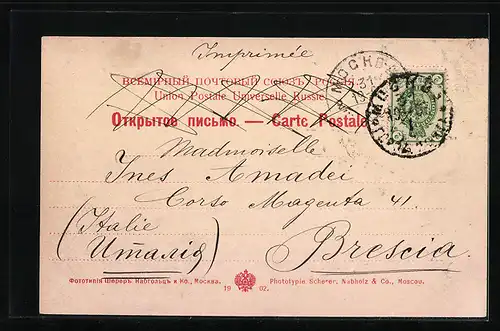 Imprimée
ВСЕМІРНЫЙ ПОЧТОВЫЙ СОЮЗЪ РОССІЯ.
Union Postale Universelle Russie.
Открытое письмо. — Carte Postale
МОСКВА
31
МОСКВА
Mademoiselle
Ines Amadei
Corso Magenta 41.
(Italie
Италія)
Brescia.
Фототипія Шереръ, Набгольцъ и Ко., Москва.
19 02.
Phototypie Scherer, Nabholz & Co., Moscou.